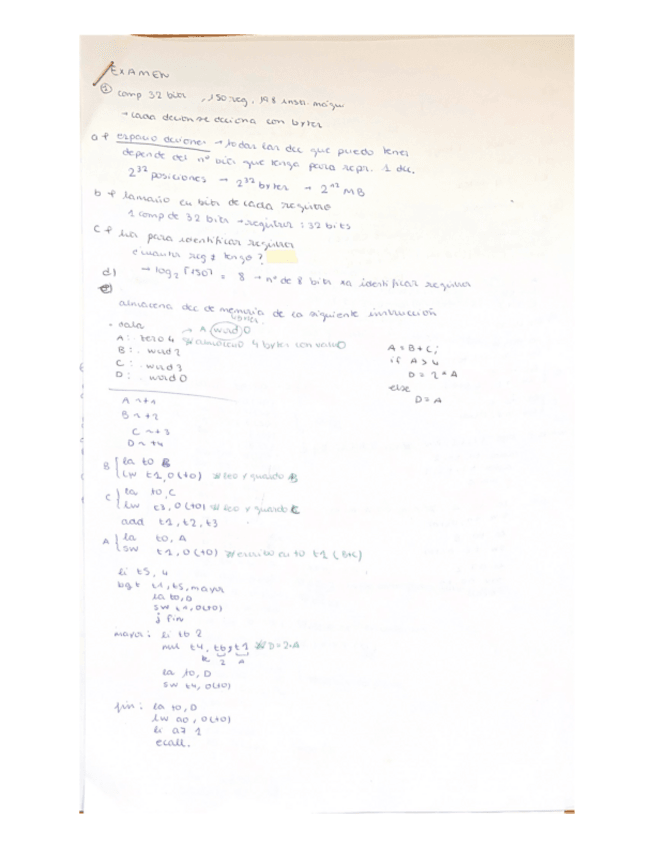 EXAMEN
① comp 32 bits , 150 reg, 198 instr. máqu
→ cada
con bytes
a) espacio → todas las que puedo tener
depende del nº bits que tengo para repr. 1 dec.
2^32 posiciones → 2^32 bytes → 2^12 MB
b) tamaño en bits de cada registro
1 comp de 32 bits → registros: 32 bits
c) para identificar registros
¿cuantos regs tengo?
d) → log2 ⌈150⌉ = 8 → nº de 8 bits identificar registros
almacena de memoria de la siguiente instrucción
. data
bytes
→ A (word) 0
A: . zero 4 almaceno 4 bytes con valor 0
B: . word 2
C: . word 3
D: . word 0
A = B + C;
if A > 4
D = 2 * A
else
D = A
A → t1
B → t2
C → t3
D → t4
B { la t0 B
lw t2, 0(t0) leo y guardo B
C { la t0, C
lw t3, 0(t0) leo y guardo C
add t1, t2, t3
A { la t0, A
sw t1, 0(t0) escribo en t0 t1 (B+C)
li t5, 4
bgt t1, t5, mayor
la t0, D
sw t1, 0(t0)
j fin
mayor: li t6 2
mul t4, t6, t1 D=2·A
2 A
la t0, D
sw t4, 0(t0)
fin: la t0, D
lw a0, 0(t0)
li a7 1
ecall.